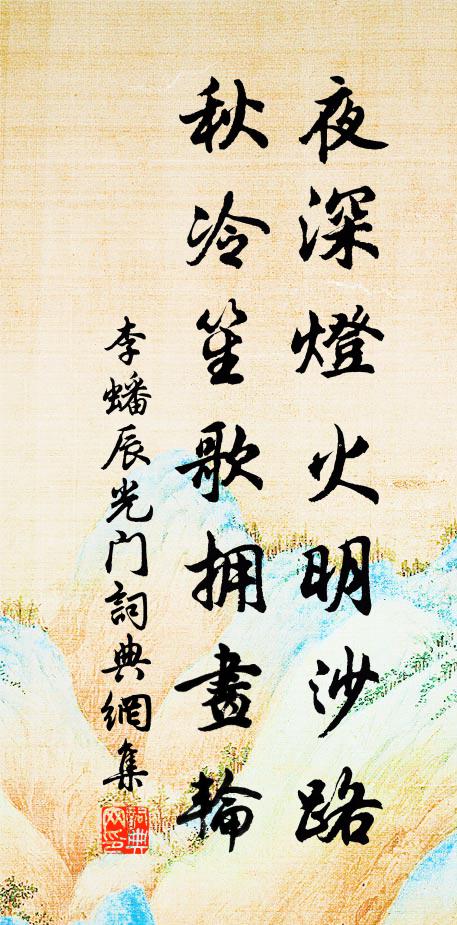 夜深燈火明沙路
秋冷笙歌拥畫輪
李蟠辰光门詞典網集
詞典